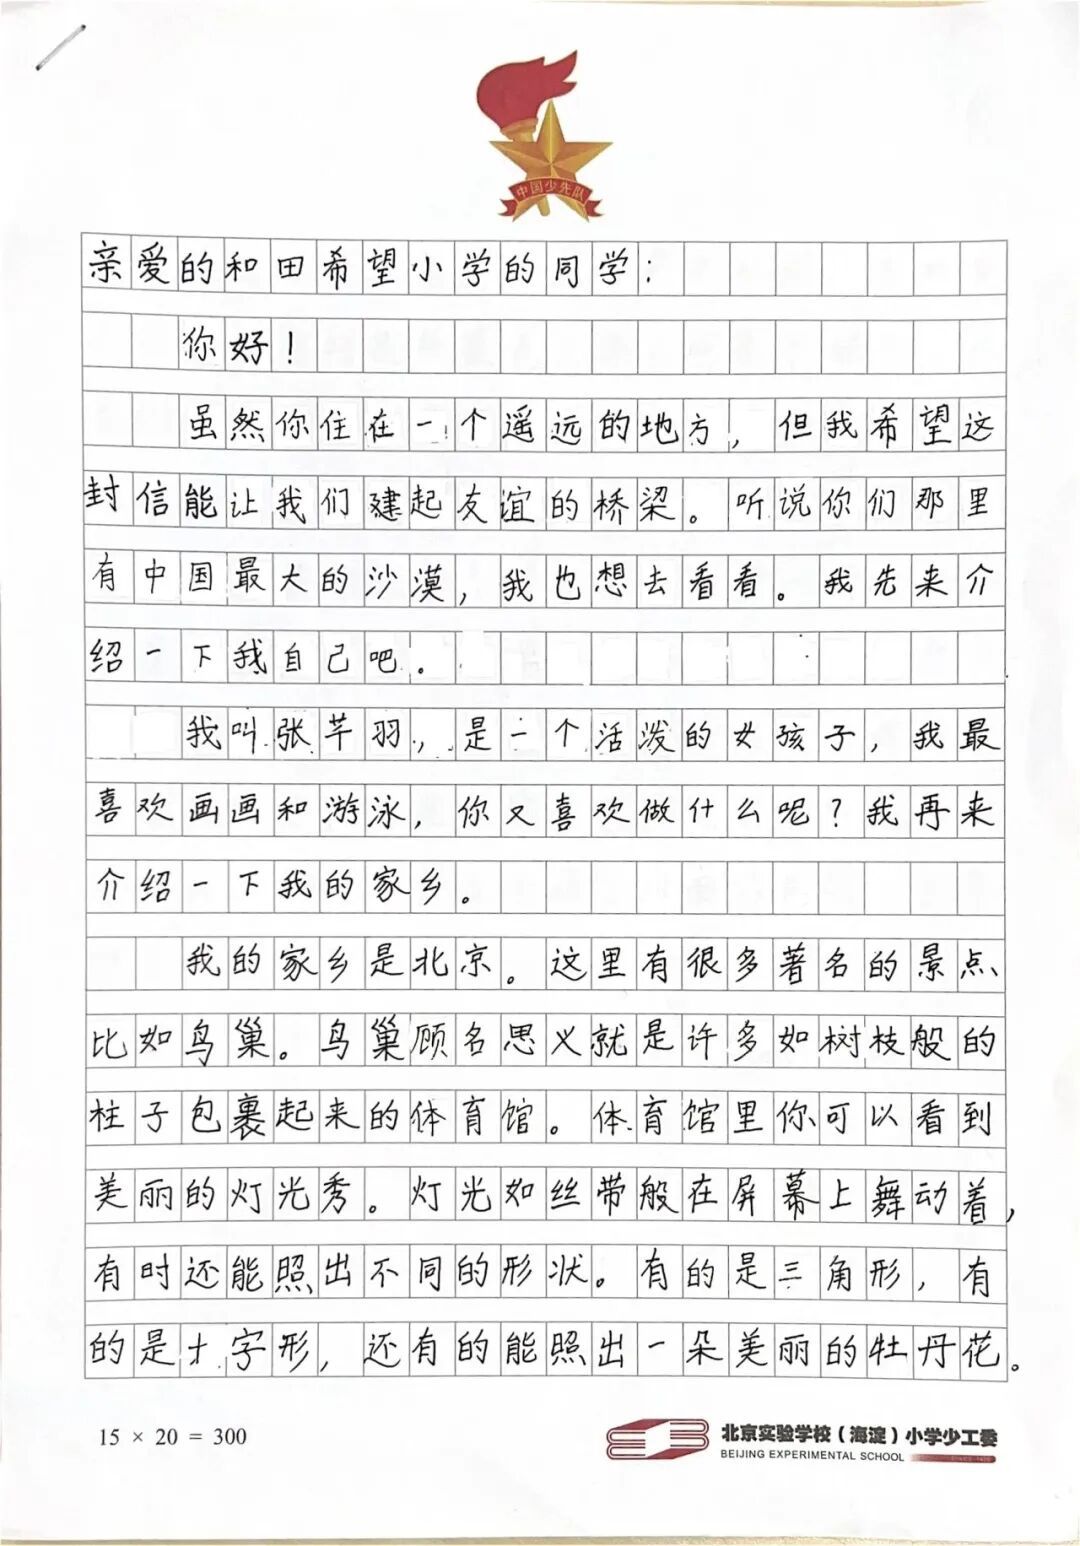 中国少先队
亲爱的和田希望小学的同学:
你好!
虽然你住在一个遥远的地方,但我希望这
封信能让我们建起友谊的桥梁。听说你们那里
有中国最大的沙漠,我也想去看看。我先来介
绍一下我自己吧。
我叫张芊羽,是一个活泼的女孩子,我最
喜欢画画和游泳,你又喜欢做什么呢?我再来
介绍一下我的家乡。
我的家乡是北京。这里有很多著名的景点、
比如鸟巢。鸟巢顾名思义就是许多如树枝般的
柱子包裹起来的体育馆。体育馆里你可以看到
美丽的灯光秀。灯光如丝带般在屏幕上舞动着,
有时还能照出不同的形状。有的是三角形,有
的是十字形,还有的能照出一朵美丽的牡丹花。
15 × 20 = 300
北京实验学校(海淀)小学少工委
BEIJING EXPERIMENTAL SCHOOL